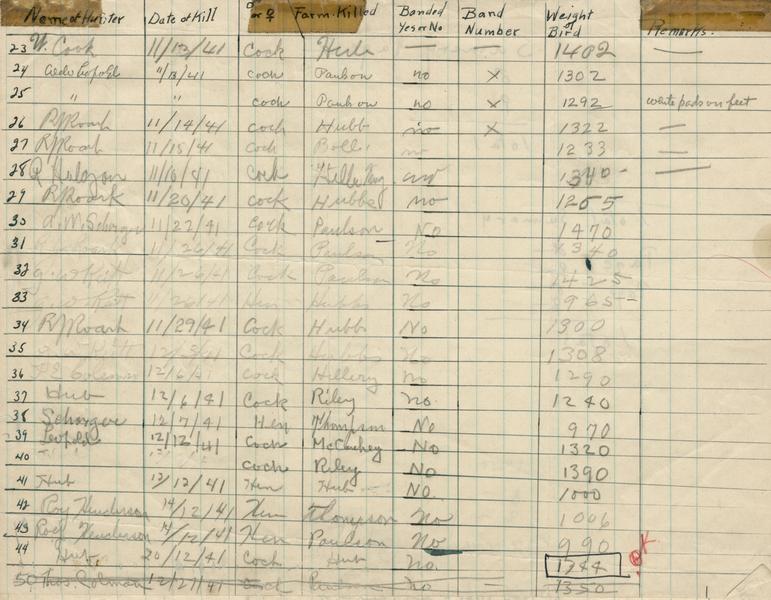 Name of Hunter Date of Kill ♂ or ♀ Farm Killed Banded Yes or No Band Number Weight of Bird Remarks.
23 W. Cook 11/12/41 Cock — — 1402 —
24 Aldo Leopold 11/13/41 cock Paulson no X 1302
25 " " cock Paulson no X 1292 white pads on feet
26 RJRoark 11/14/41 Cock Hubb no X 1322 —
27 RJRoark 11/15/41 Cock no 1233 —
28 cock 1340 —
29 RJRoark 11/20/41 cock Hubbs no 1265
30 A.W. Schorger 11/22/41 Cock Paulson No 1470
31 11/26/41 Cock Paulson No 1340
32 11/26/41 Cock Paulson No 1425
33 11/26/41 Hen Hubbs No 965 —
34 RJRoark 11/29/41 Cock Hubbs No 1300
35 Cock Hubbs No 1308
36 12/6/41 cock Hillery No 1290
37 Hub 12/6/41 Cock Riley no. 1240
38 Schorger 12/7/41 Hen Thompson No 970
39 Leopold 12/12/41 Cock No 1320
40 " " cock Riley No 1390
41 Hub 12/12/41 Hen Hub No. 1000
42 Roy Henderson 14/12/41 Hen Thompson No 1006
43 Henderson 14/12/41 Hen Paulson No 990
44 Hub 20/12/41 Cock Hub No. 1744 OK
50 Thos. Colman 12/27/41 Cock Paulson no — 1350